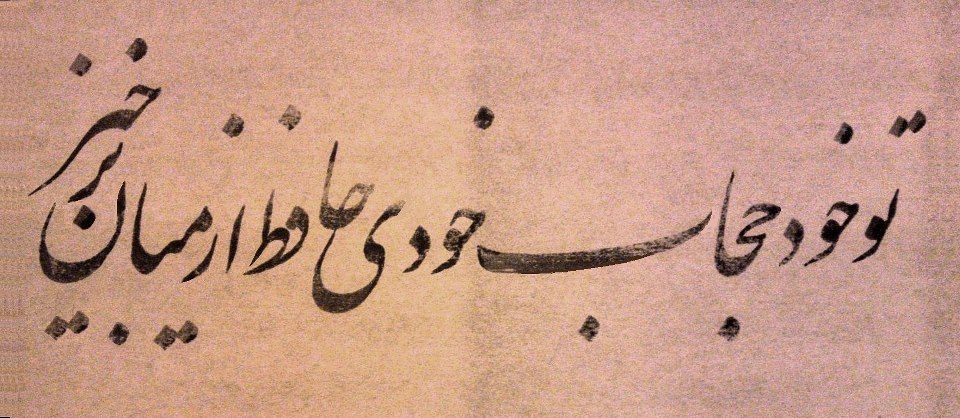 تو خود حجاب خودی حافظ از میان برخیز